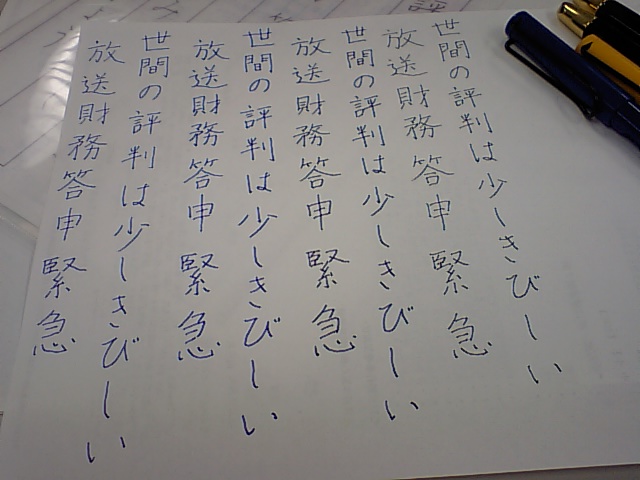 世間の評判は少しきびしい
放送財務答申緊急
世間の評判は少しきびしい
放送財務答申緊急
世間の評判は少しきびしい
放送財務答申緊急
世間の評判は少しきびしい
放送財務答申緊急